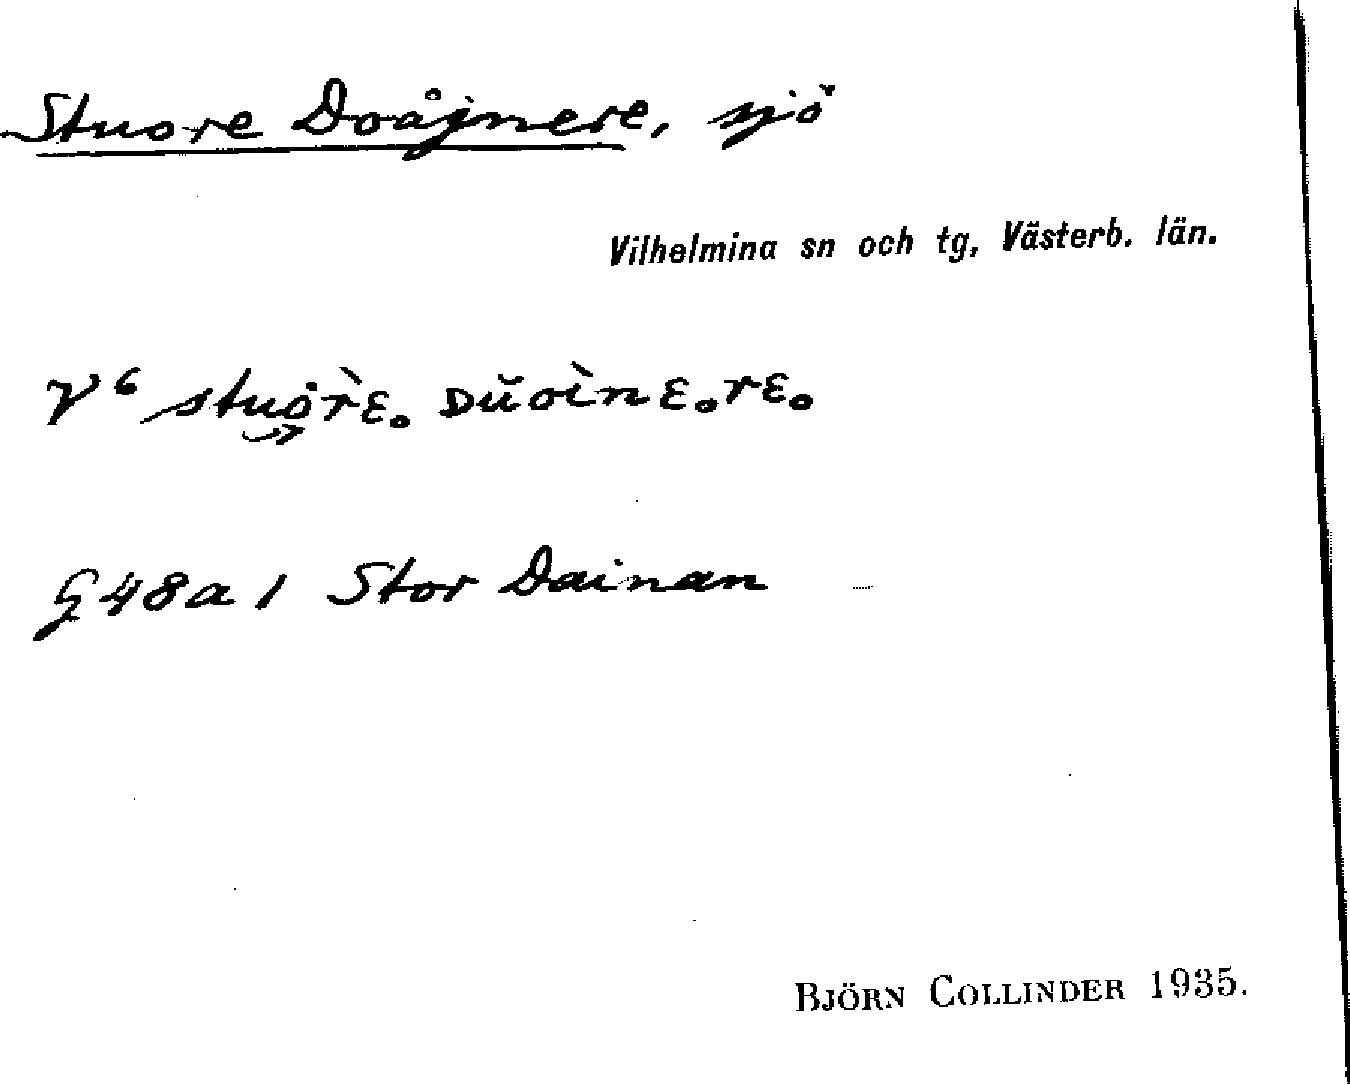 Stuore Doåjnere, sjö
Vilhelmina sn och tg, Västerb. län.
V⁶ stuo̊r̀ɛ₀ ᴅŭoìnɛ₀rɛ₀
G48a1 Stor Dainan
BJÖRN COLLINDER 1935.